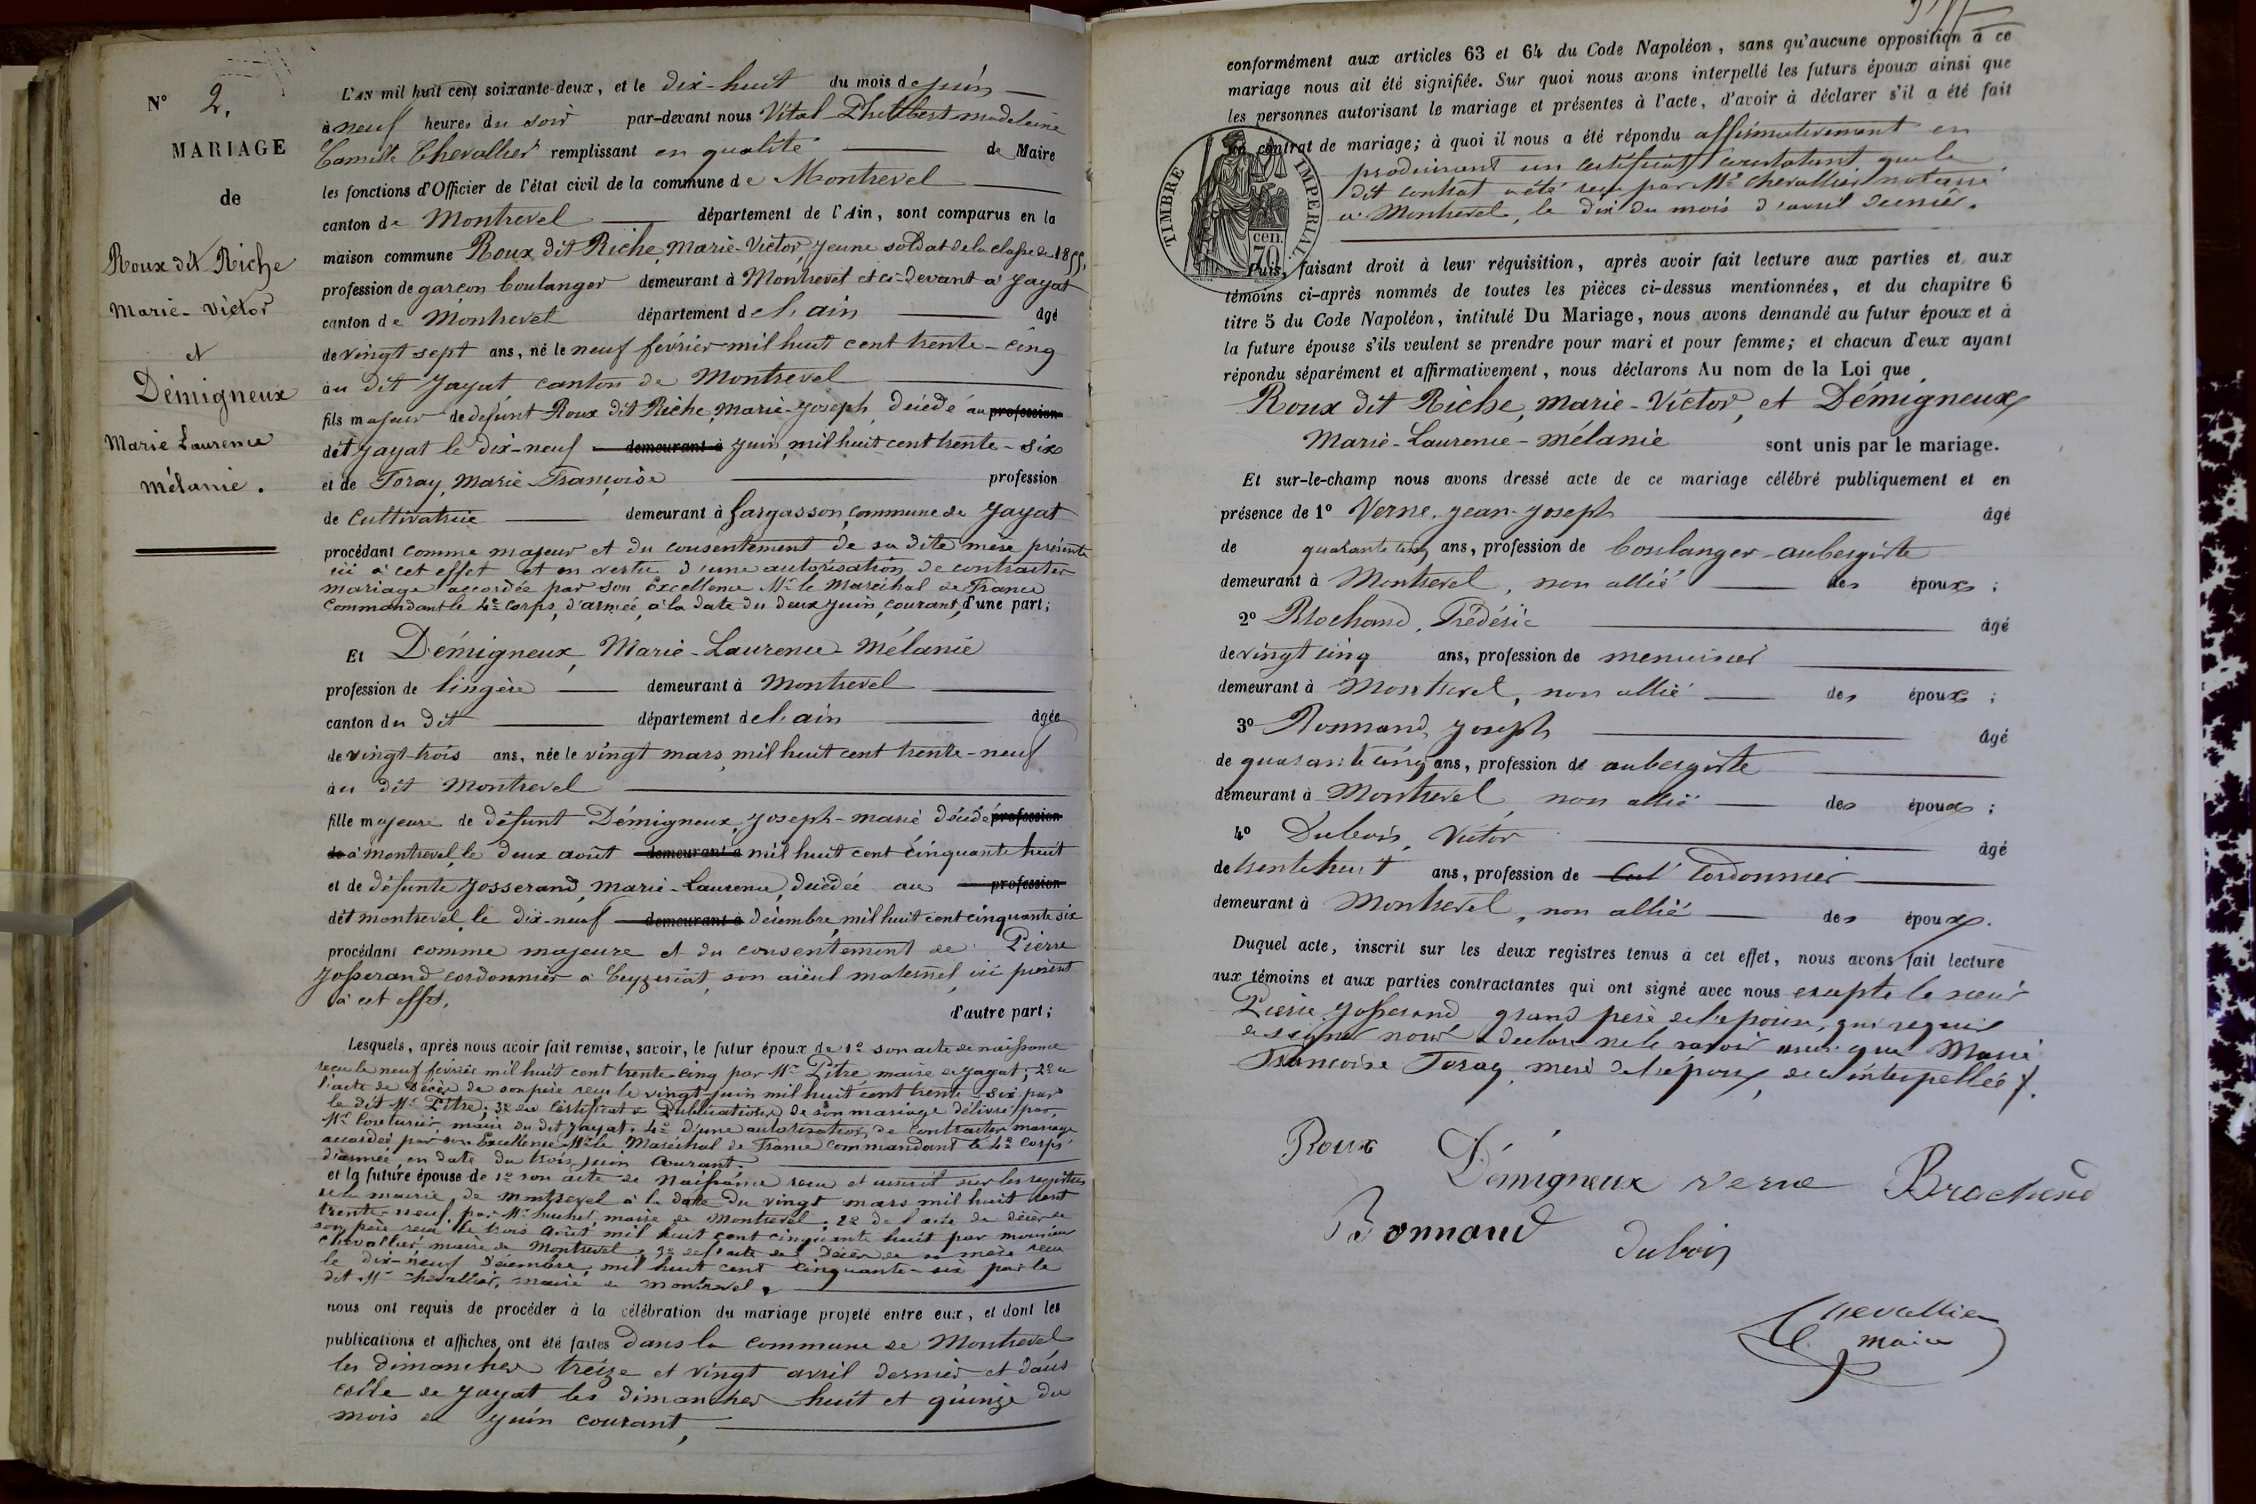 N° 2.
MARIAGE
de
Roux dit Riche
Marie-Victor
et
Démigneux
Marie Laurence
Mélanie.
L'AN mil huit cent soixante-deux, et le dix-huit du mois de juin
à neuf heures du soir par-devant nous Vital Philibert Madeleine
Camille Chevallier remplissant en qualité de Maire
les fonctions d'Officier de l'état civil de la commune de Montrevel
canton de Montrevel département de l'Ain, sont comparus en la
maison commune Roux dit Riche, Marie-Victor, jeune soldat de la classe de 1855,
profession de garçon boulanger demeurant à Montrevel et ci-devant à Jayat
canton de Montrevel département de l'ain âgé
de vingt sept ans, né le neuf février mil huit cent trente-cinq
au dit Jayat canton de Montrevel
fils majeur de défunt Roux dit Riche, Marie-Joseph, décédé au profession
dit Jayat le dix-neuf demeurant à juin, mil huit cent trente-six
et de Foray, Marie Françoise profession
de cultivatrice demeurant à Gargasson, commune de Jayat
procédant comme majeur et du consentement de sa dite mère présente
ici à cet effet et en vertu d'une autorisation de contracter
mariage accordée par son Excellence Mr le Maréchal de France
Commandant le 4e corps d'armée, à la date du deux juin, courant, d'une part;
Et Démigneux, Marie-Laurence-Mélanie
profession de lingère demeurant à Montrevel
canton du dit département de l'ain âgée
de vingt-trois ans, née le vingt mars, mil huit cent trente-neuf
au dit Montrevel
fille majeure de défunt Démigneux, Joseph-Marie décédé profession
de à Montrevel, le deux août demeurant à mil huit cent cinquante huit
et de défunte Josserand, Marie-Laurence, décédée au profession
dit Montrevel, le dix-neuf demeurant à décembre, mil huit cent cinquante six
procédant comme majeure et du consentement de Pierre
Josserand cordonnier à Ceyzeriat, son aïeul maternel, ici présent
à cet effet. d'autre part;
Lesquels, après nous avoir fait remise, savoir, le futur époux de 1° son acte de naissance
reçu le neuf février mil huit cent trente-cinq par Mr Pitre, maire de Jayat; 2° de
l'acte de décès de son père reçu le vingt juin mil huit cent trente-six par
le dit Mr Pitre; 3° du certificat de Publication de son mariage délivré par
Mr Couturier, maire du dit Jayat; 4° d'une autorisation de contracter mariage
accordée par son Excellence Mr le Maréchal de France commandant le 4e corps
d'armée en date du trois juin courant.
et la future épouse de 1° son acte de naissance reçu et inscrit sur les registres
de la mairie de Montrevel à la date du vingt mars mil huit cent
trente-neuf par Mr maire de Montrevel; 2° de l'acte de décès de
son père reçu le trois août mil huit cent cinquante huit par monsieur
Chevallier, maire de Montrevel; 3° de l'acte de décès de sa mère reçu
le dix-neuf décembre mil huit cent cinquante-six par le
dit Mr Chevallier, maire de Montrevel.
nous ont requis de procéder à la célébration du mariage projeté entre eux, et dont les
publications et affiches ont été faites dans la commune de Montrevel
les dimanches treize et vingt avril dernier et dans
celle de Jayat les dimanches huit et quinze du
mois de juin courant,
conformément aux articles 63 et 64 du Code Napoléon, sans qu'aucune opposition à ce
mariage nous ait été signifiée. Sur quoi nous avons interpellé les futurs époux ainsi que
les personnes autorisant le mariage et présentes à l'acte, d'avoir à déclarer s'il a été fait
un contrat de mariage; à quoi il nous a été répondu affirmativement en
produisant un certificat constatant que le
dit contrat a été reçu par Me Chevallier notaire
à Montrevel, le dix du mois d'avril dernier.
TIMBRE IMPÉRIAL
70 cen.
Puis, faisant droit à leur réquisition, après avoir fait lecture aux parties et aux
témoins ci-après nommés de toutes les pièces ci-dessus mentionnées, et du chapitre 6
titre 5 du Code Napoléon, intitulé Du Mariage, nous avons demandé au futur époux et à
la future épouse s'ils veulent se prendre pour mari et pour femme; et chacun d'eux ayant
répondu séparément et affirmativement, nous déclarons Au nom de la Loi que
Roux dit Riche, Marie-Victor, et Démigneux
Marie-Laurence-Mélanie sont unis par le mariage.
Et sur-le-champ nous avons dressé acte de ce mariage célébré publiquement et en
présence de 1° Verne, Jean-Joseph âgé
de quarante cinq ans, profession de boulanger-aubergiste
demeurant à Montrevel, non allié des époux;
2° Brochand, Frédéric âgé
de vingt cinq ans, profession de menuisier
demeurant à Montrevel, non allié des époux;
3° Bonnand, Joseph âgé
de quarante cinq ans, profession de aubergiste
demeurant à Montrevel, non allié des époux;
4° Dubois, Victor âgé
de trente huit ans, profession de cult cordonnier
demeurant à Montrevel, non allié des époux.
Duquel acte, inscrit sur les deux registres tenus à cet effet, nous avons fait lecture
aux témoins et aux parties contractantes qui ont signé avec nous excepté le sieur
Pierre Josserand grand père de l'épouse, qui requis
de signer nous a déclaré ne le savoir ainsi que Marie
Françoise Foray, mère de l'époux, de ce interpellée.
Roux Démigneux verne Brochand
Bonnand dubois
Chevallier
maire